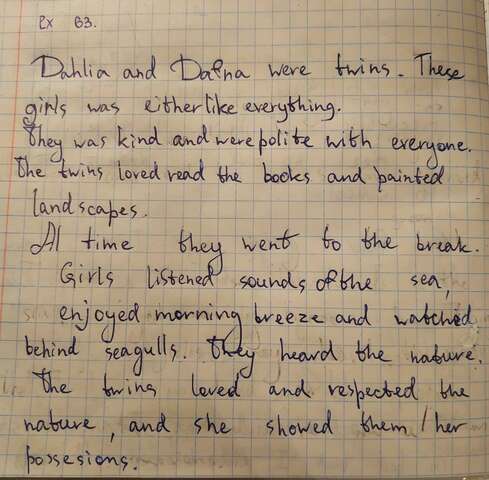 Ex 63.
Dahlia and Dafna were twins. These
girls was either like everything.
They was kind and were polite with everyone.
The twins loved read the books and painted
landscapes.
Al time they went to the break.
Girls listened sounds of the sea,
enjoyed morning breeze and watched
behind seagulls. They heard the nature.
The twins loved and respected the
nature, and she showed them / her
possesions.